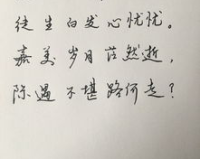 徒生白发心忧忧。
嘉美岁月茫然逝，
际遇不堪路何走？